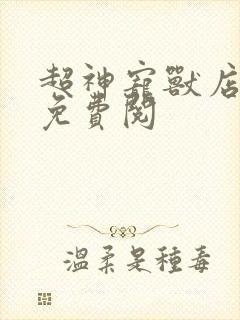 超神寵獸店
免費閱
溫柔是種毒